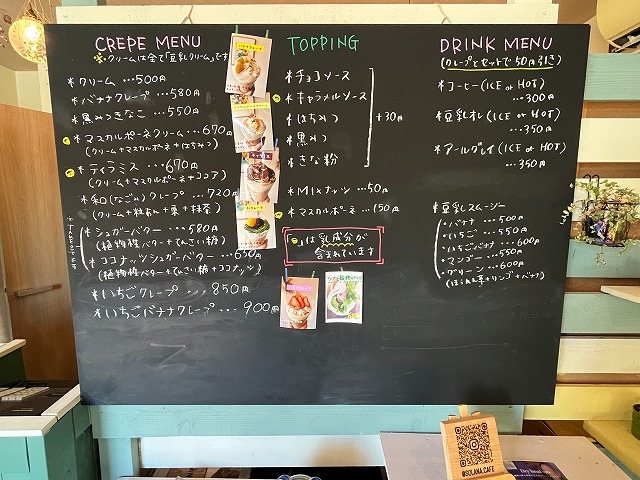 CREPE MENU
※クリームは全て「豆乳クリーム」です
*クリーム …500円
*バナナクレープ …580円
*黒みつきなこ …550円
*マスカルポーネクリーム …670円
(クリーム+マスカルポーネ+はちみつ)
*ティラミス …670円
(クリーム+マスカルポーネ+ココア)
*和(なごみ)クレープ …720円
(クリーム+粒あん+栗+抹茶)
*シュガーバター …580円
(植物性バター+てんさい糖)
*ココナッツシュガーバター …630円
(植物性バター+てんさい糖+ココナッツ)
*いちごクレープ …850円
*いちごバナナクレープ …900円
TOPPING
*チョコソース
*キャラメルソース
*はちみつ
*黒みつ
*きな粉
+30円
*MIXナッツ …50円
*マスカルポーネ …150円
は乳成分が
含まれています
DRINK MENU
(クレープとセットで50円引き)
*コーヒー(ICE or HOT)
…300円
*豆乳オレ(ICE or HOT)
…350円
*アールグレイ(ICE or HOT)
…350円
*豆乳スムージー
・バナナ …500円
・いちご …550円
・いちごバナナ …600円
・マンゴー …550円
・グリーン …600円
(ほうれん草+リンゴ+バナナ)
@SOLANA.CAFE